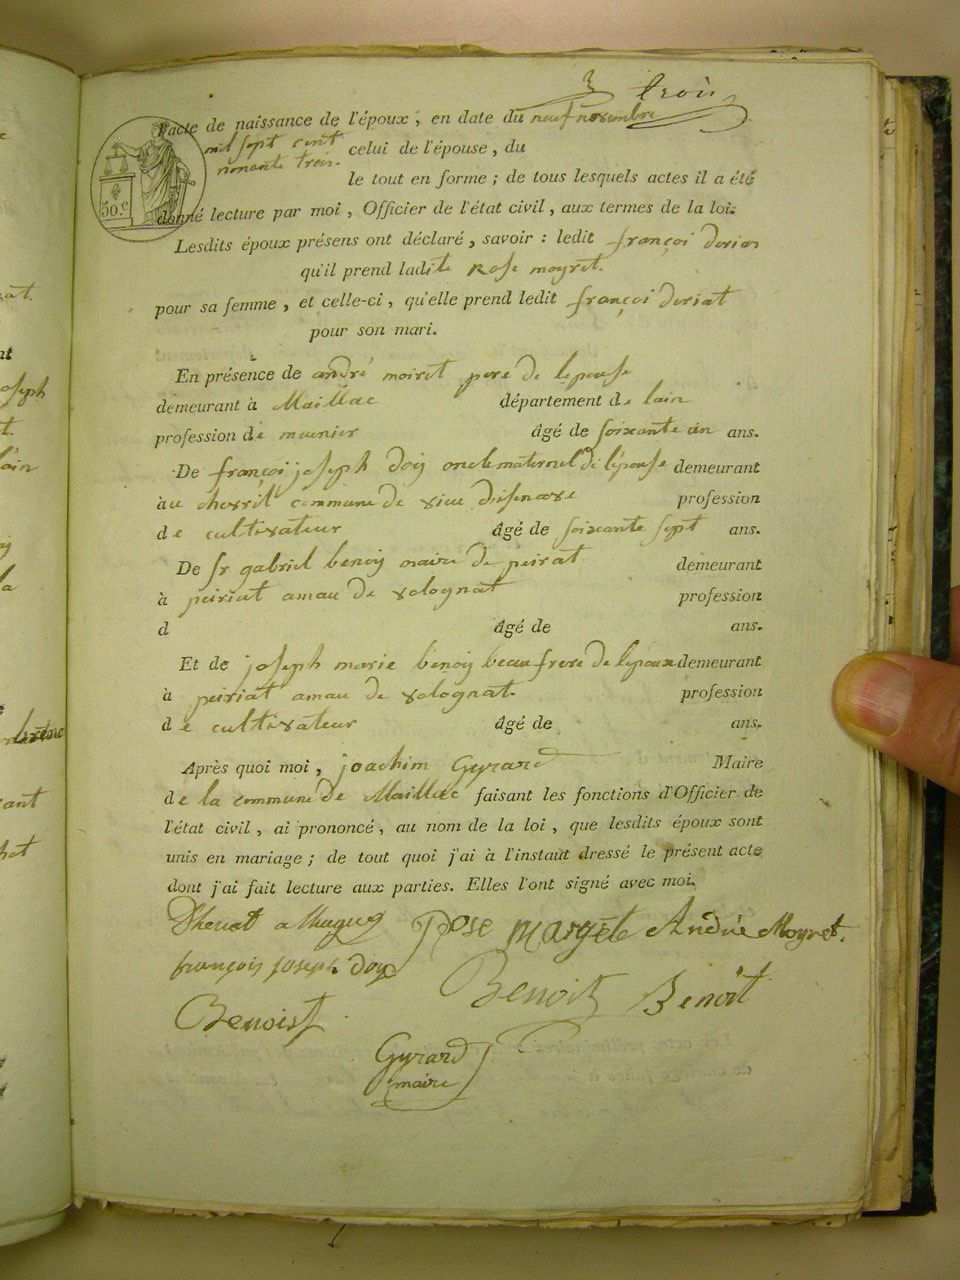 3 trois
l'acte de naissance de l'époux, en date du neuf novembre
mil sept cent
nonante trois. celui de l'épouse, du
le tout en forme ; de tous lesquels actes il a été
donné lecture par moi, Officier de l'état civil, aux termes de la loi.
50.c
Lesdits époux présens ont déclaré, savoir : ledit françoi
qu'il prend ladite Rose moyret.
pour sa femme, et celle-ci, qu'elle prend ledit françoi deriat
pour son mari.
En présence de andré moiret pere de lepouse
demeurant à Maillac département de lain
profession de meunier âgé de soixante un ans.
De françoi joseph doy oncle maternel de lepouse demeurant
au chevril commune de vieu disenave profession
de cultivateur âgé de soixante sept ans.
De sr gabriel benoy maire de peirat demeurant
à peiriat amau de volognat profession
d âgé de ans.
Et de joseph marie benoy beau frere de lepoux demeurant
à peiriat amau de volognat. profession
de cultivateur âgé de ans.
Après quoi moi, joachim Gyrard Maire
de la commune de Maillac faisant les fonctions d'Officier de
l'état civil, ai prononcé, au nom de la loi, que lesdits époux sont
unis en mariage ; de tout quoi j'ai à l'instant dressé le présent acte
dont j'ai fait lecture aux parties. Elles l'ont signé avec moi.
Rose Andrée Moyret.
françois joseph doy
Benoit Benoit
Benoist
Gyrard
maire